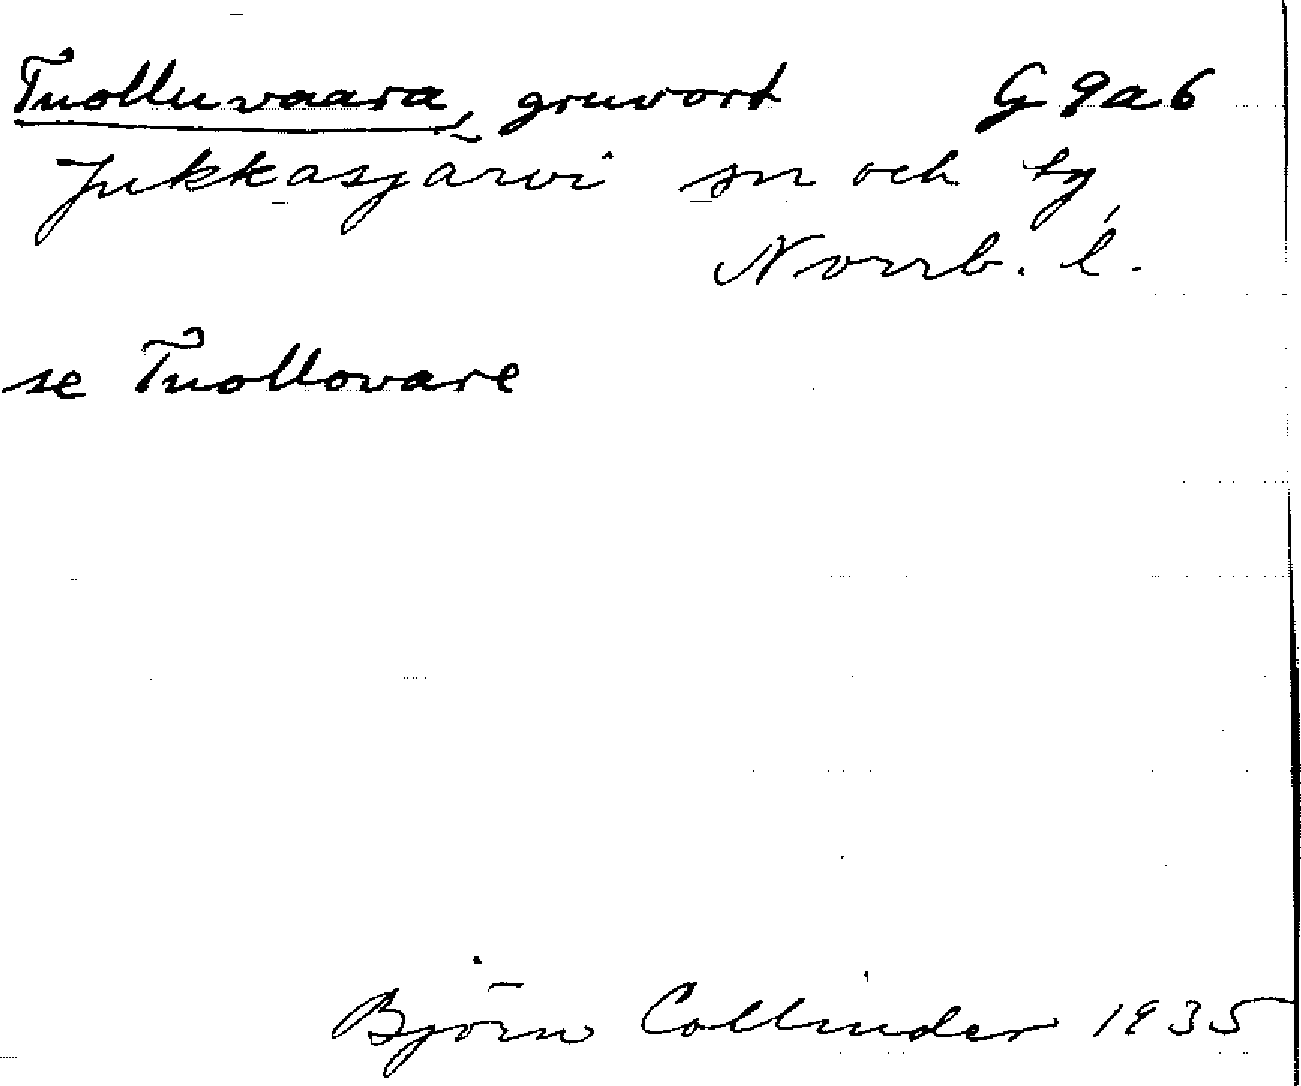 Tuolluvaara, gruvort G 9a6
Jukkasjärvi sn och tg,
Norrb. l.
se Tuollovare
Björn Collinder 1935